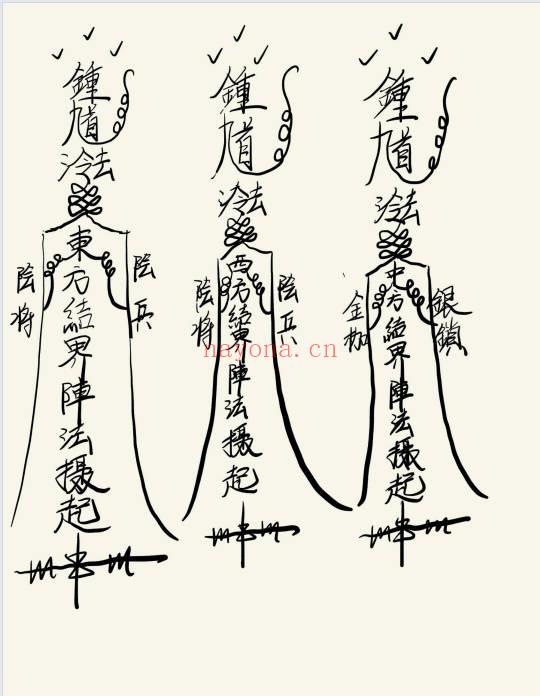 鍾馗
冷去
東方結界陣法攝起
陰將
陰兵
鍾馗
冷去
西方結界陣法攝起
陰將
陰兵
鍾馗
冷去
中方結界陣法攝起
金枷
銀鎖
nayona.cn